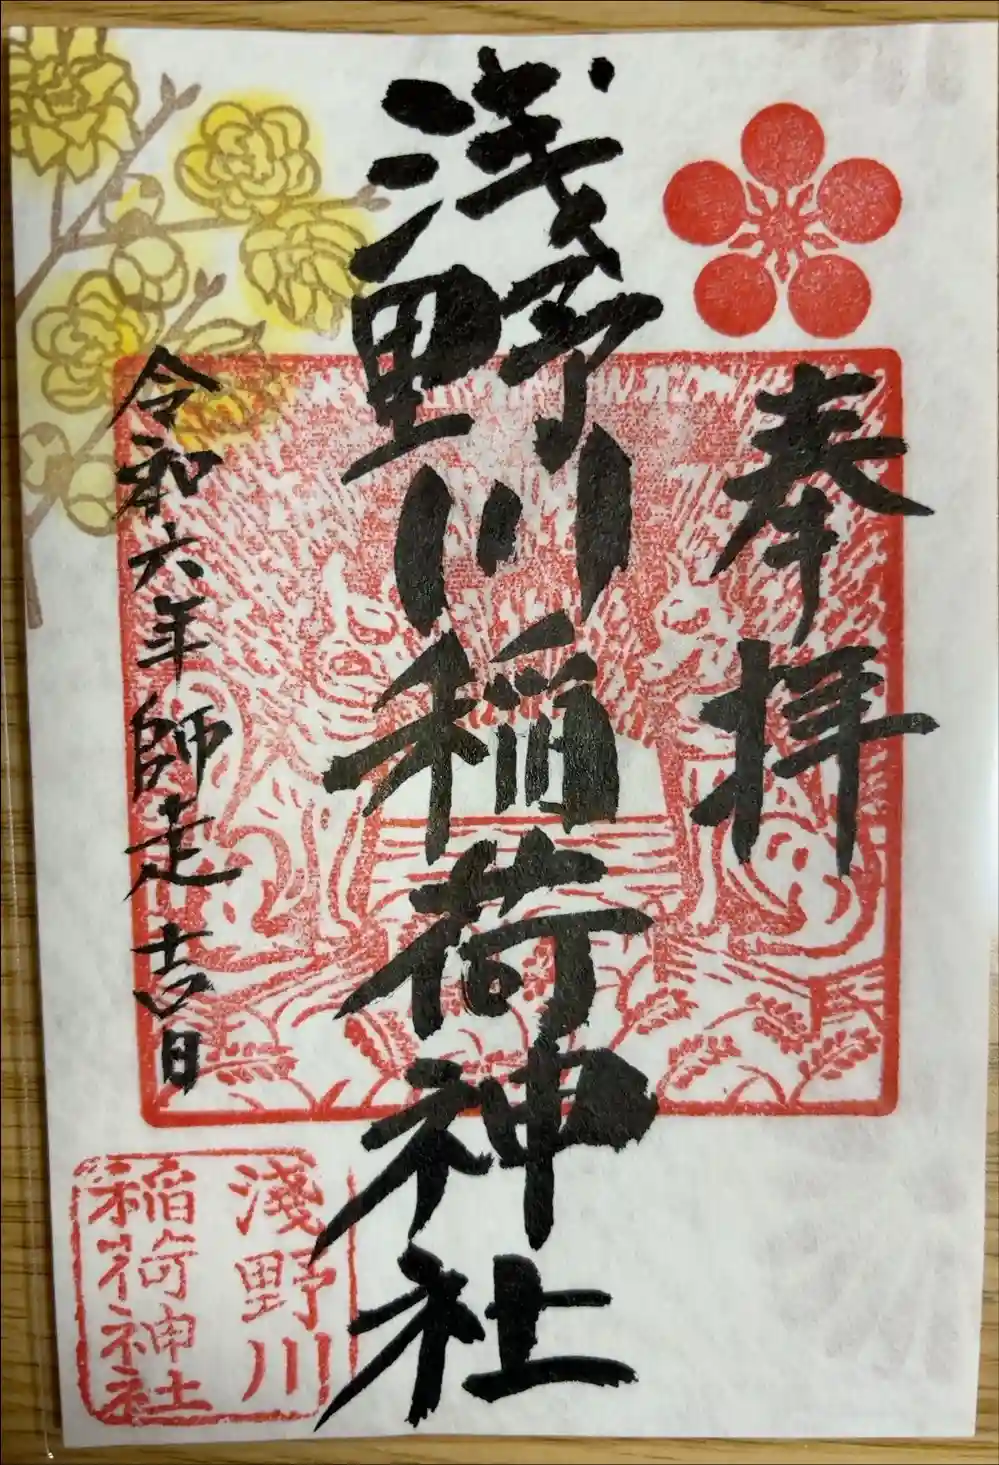 奉拝
浅野川稲荷神社
令和六年師走吉日
淺野川
稲荷神社